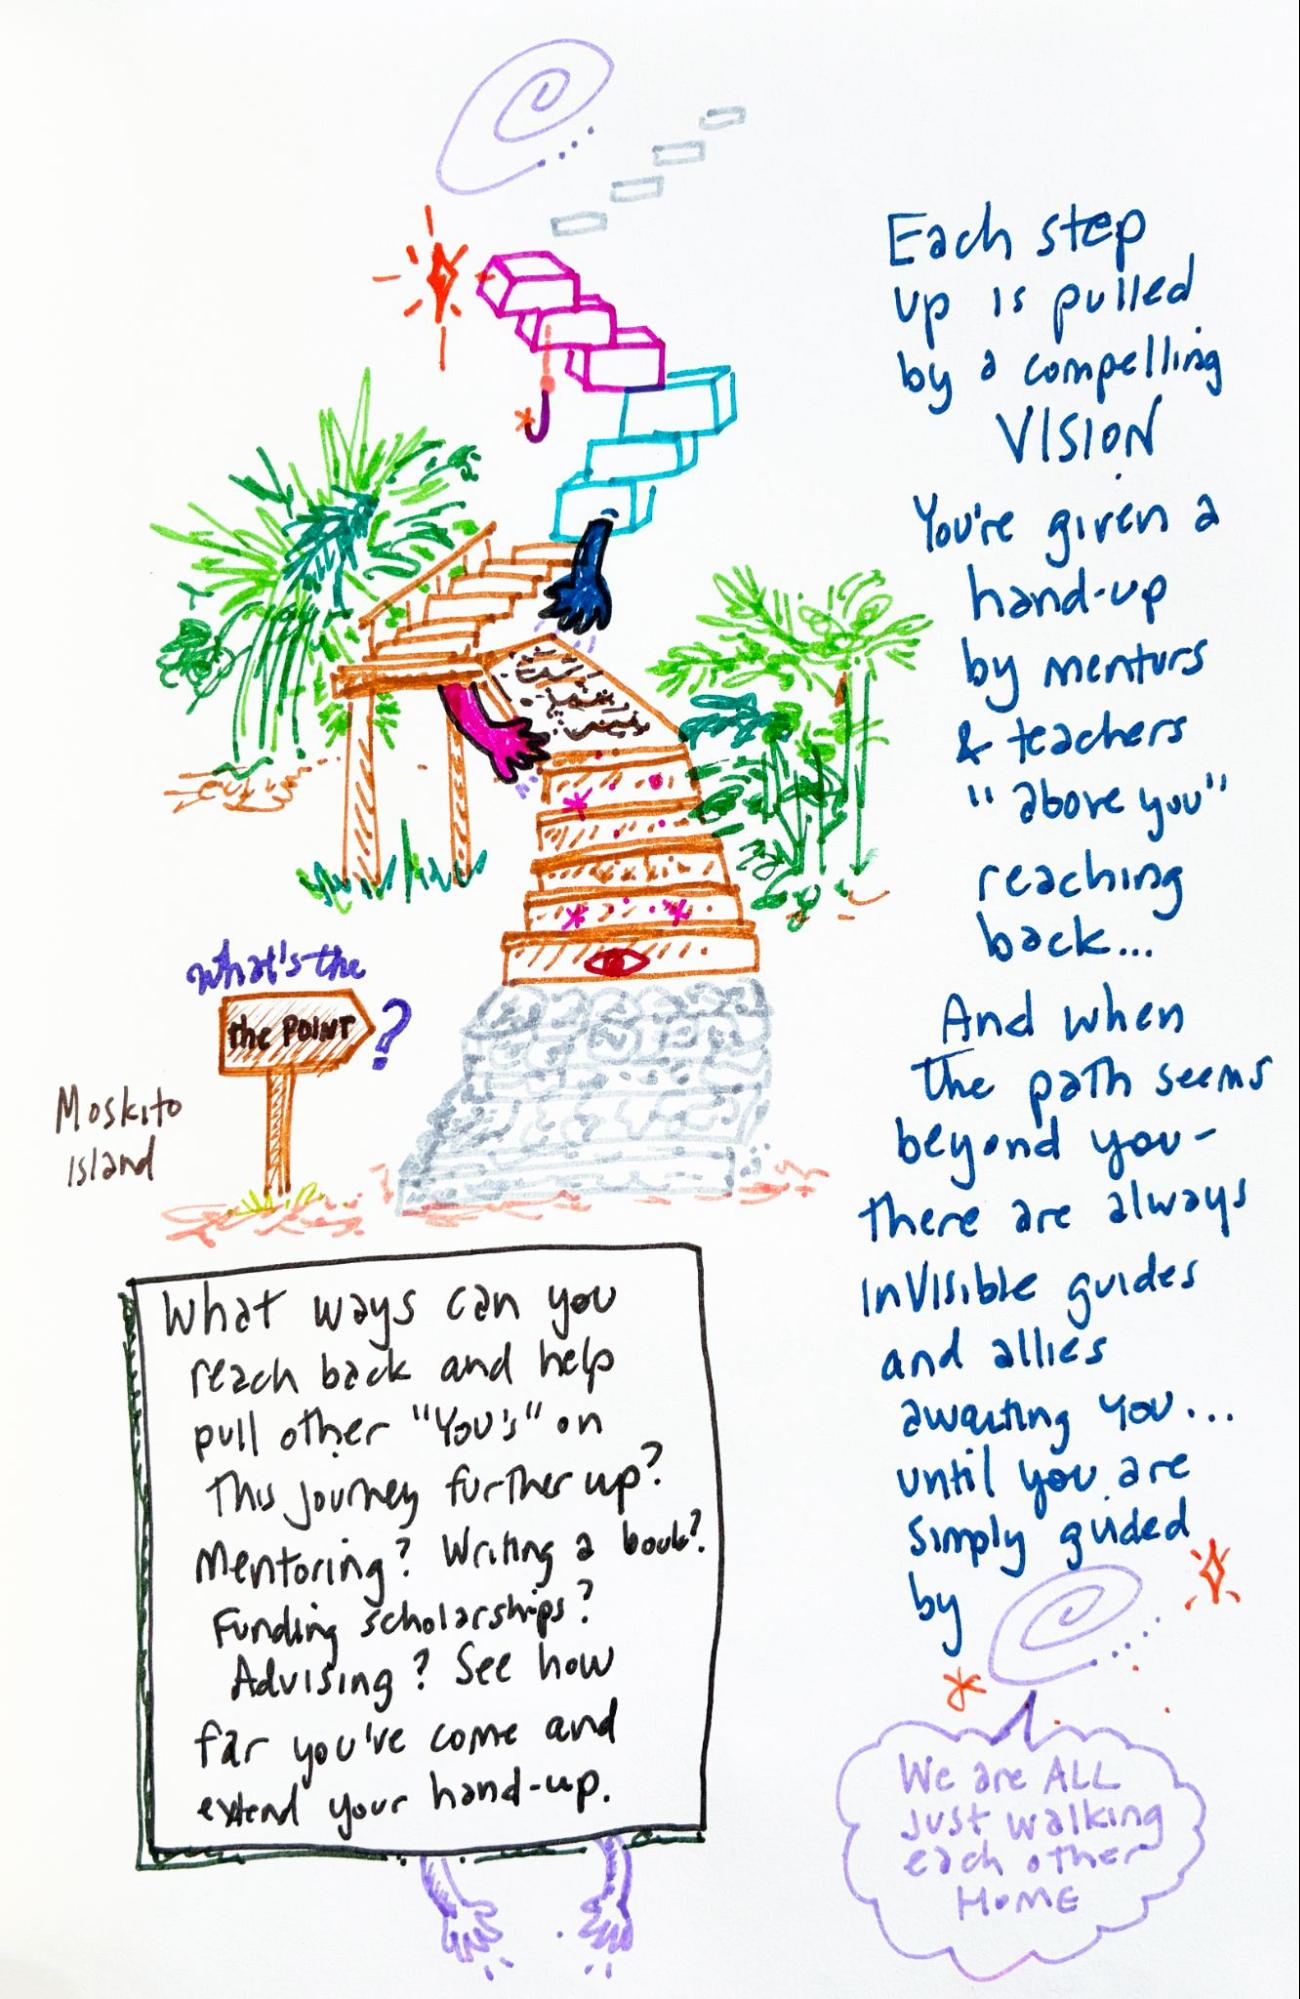 Each step
up is pulled
by a compelling
VISION
You're given a
hand-up
by mentors
& teachers
"above you"
reaching
back...
And when
the path seems
beyond you-
there are always
inVISible guides
and allies
awaiting you...
until you are
simply guided
by
We are ALL
just walking
each other
HOME
what's the
the POINT
?
Moskito
island
What ways can you
reach back and help
pull other "You's" on
this journey further up?
Mentoring? Writing a book?
Funding scholarships?
Advising? See how
far you've come and
extend your hand-up.